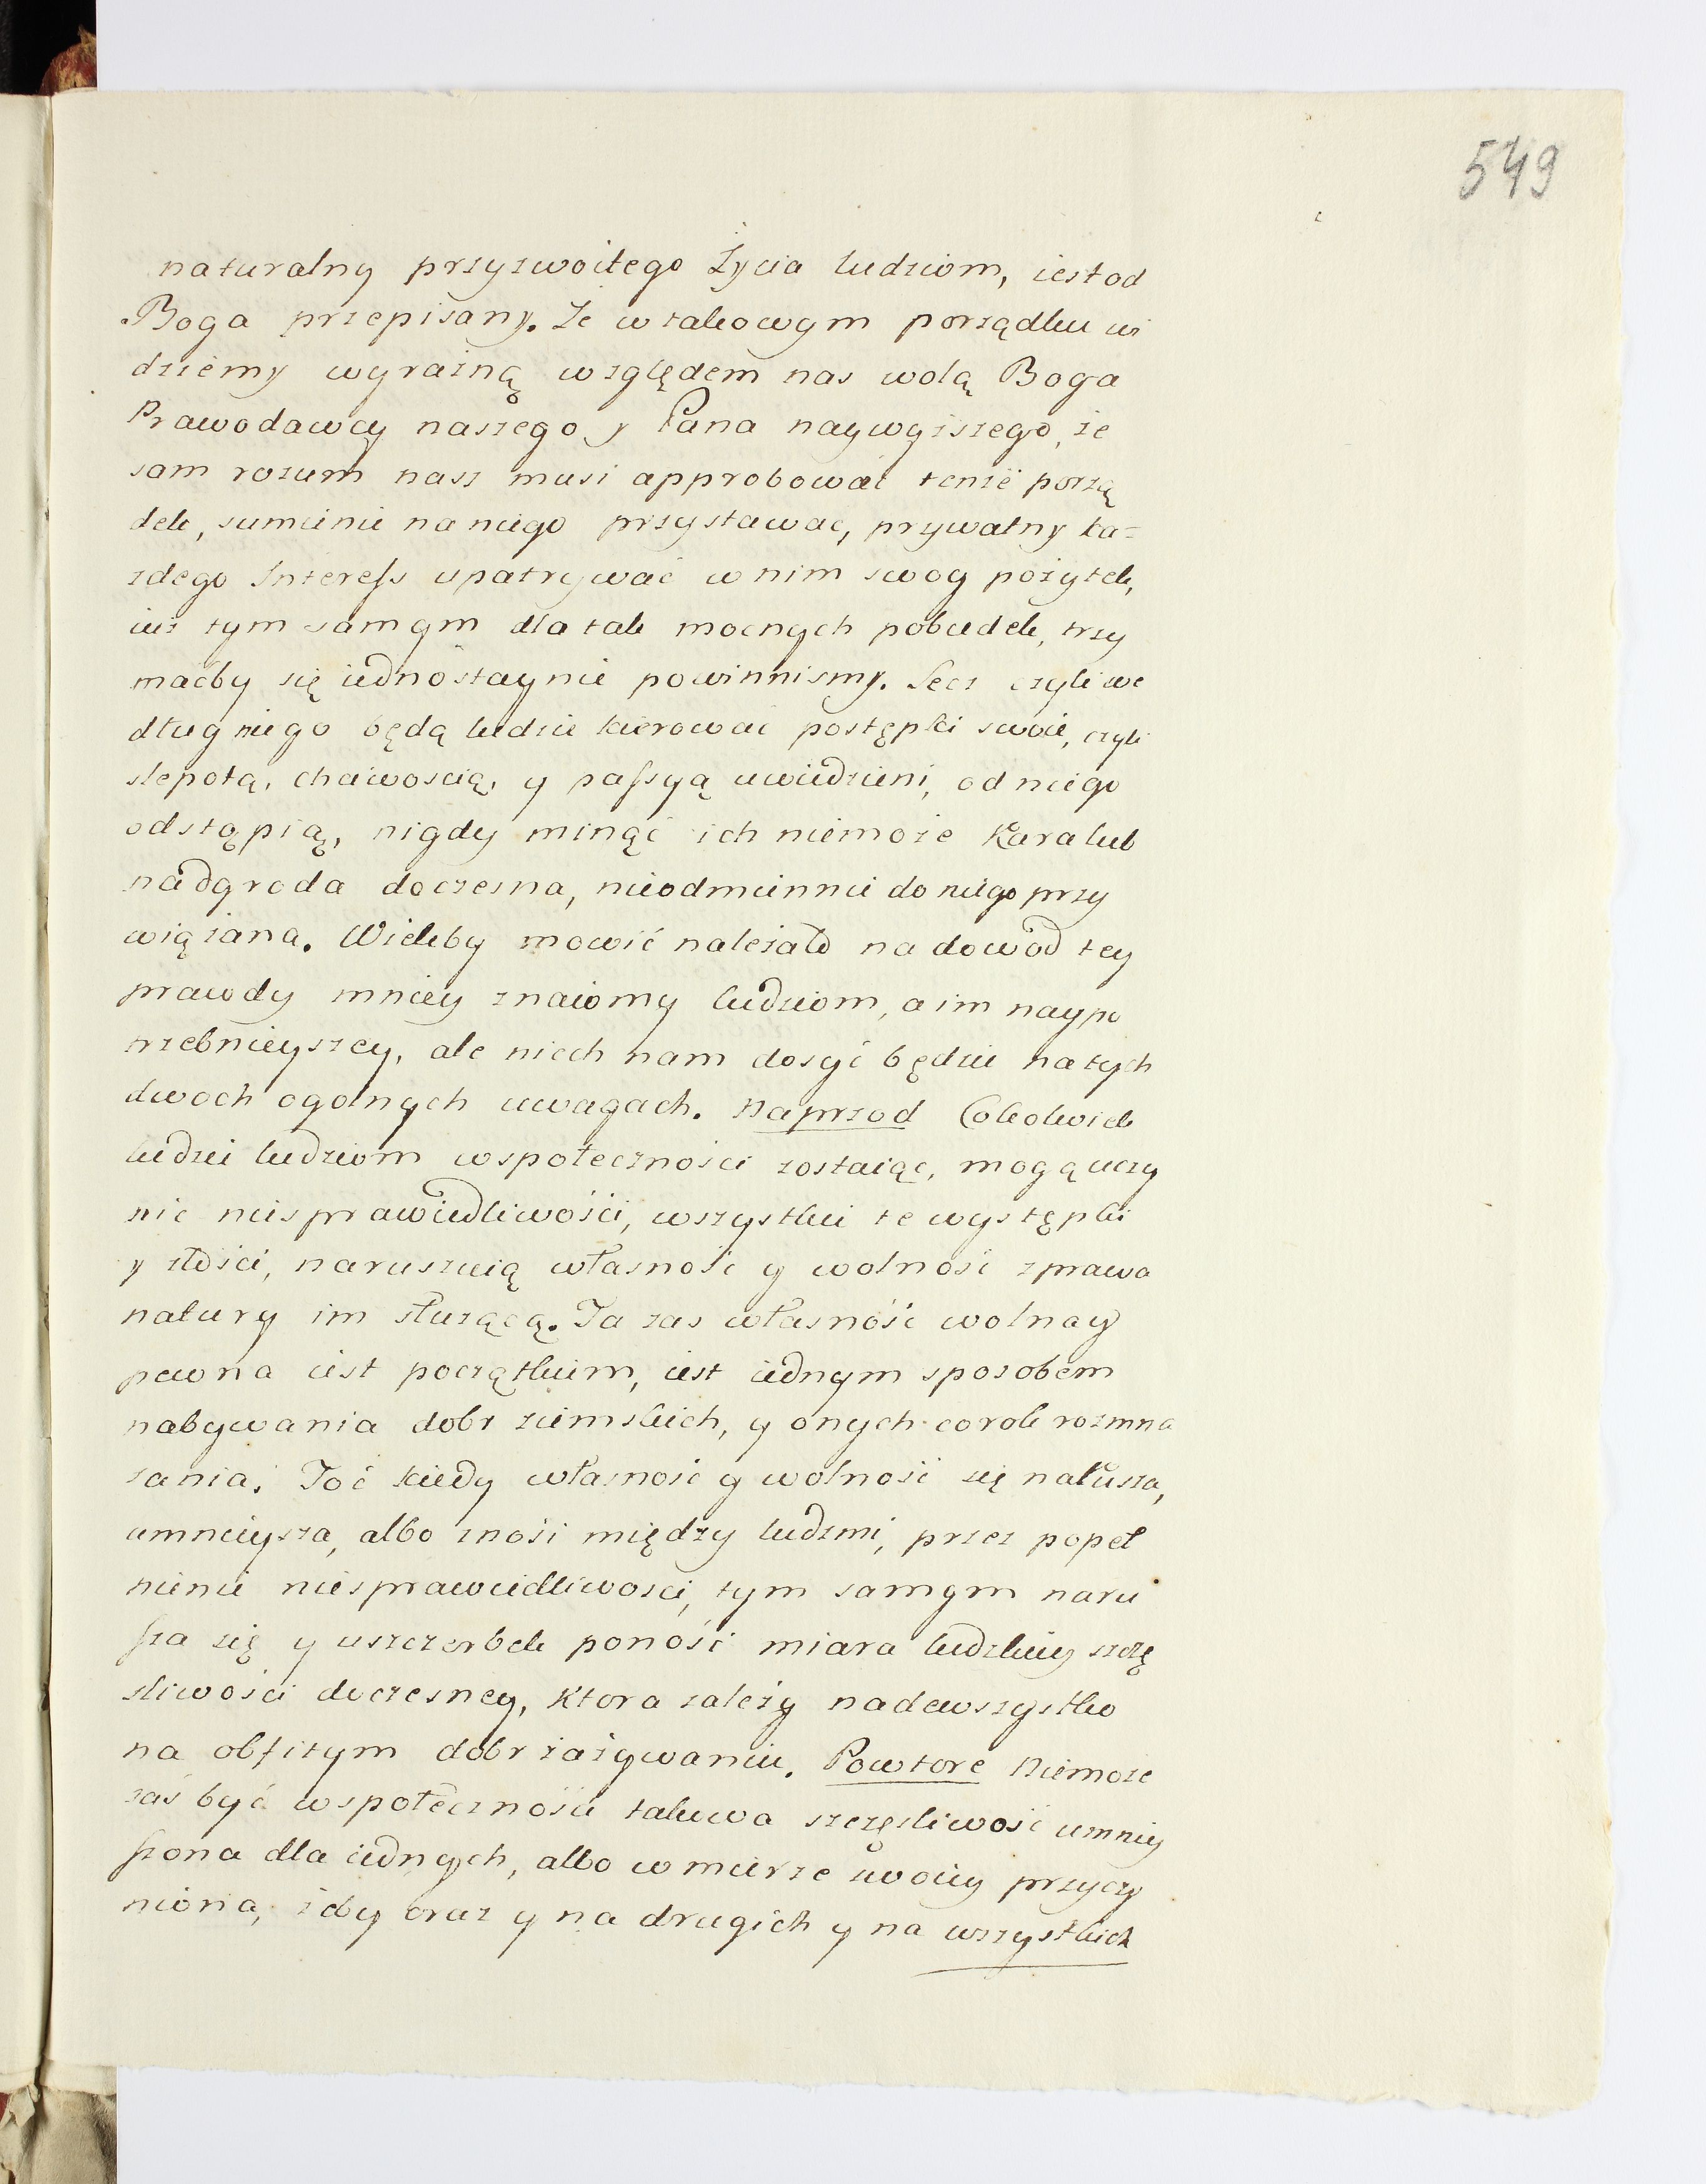 549
naturalny przyzwoitego Życia ludziom, iest od
Boga przepisany. Że w takowym porządku wi
dziemy wyraźną względem nas wolą Boga
Prawodawcy naszego y Pana naywyższego, że
sam rozum nasz musi approbować tenże porzą
dek, sumienie na niego przystawać, prywatny ka=
żdego Interess upatrywać w nim swoy pożytek,
iuż tym samym dla tak mocnych pobudek, trzy
maćby się iednostaynie powinnismy. Lecz czyli we
dług niego będą ludzie kierować postępki swoie, czyli
slepotą, chciwoscią, y passyą uwiedzieni, od niego
odstąpią, nigdy minąć ich niemoże Kara lub
nadgroda doczesna, nieodmiennie do niego przy
wiązana. Wieleby mowić należało na dowod tey
prawdy mniey znaiomy ludziom, a im naypo
trzebnieyszey, ale niech nam dosyć będzie na tych
dwoch ogolnych uwagach. Naprzod Cokolwiek
ludzie ludziom w społecznosci zostaiąc, mogą uczy
nic niesprawiedliwości, wszystkie te występki
y złości, naruszaią własność y wolność z prawa
natury im służącą. Ta zas własność wolna y
pewna iest początkiem, iest iednym sposobem
nabywania dobr ziemskich, y onych co rok rozmna
zania. Toć kiedy własność y wolność się narusza,
umnieysza, albo znosi między ludzmi, przez popeł
nienie niesprawiedliwosci, tym samym naru
sza się y uszczerbek ponośi miara ludzkiey szczę
sliwości doczesney, Ktora zależy nadewszystko
na obfitym dobr zażywaniu. Powtore Niemoże
zaś być w społeczności takowa szczęsliwość umniey
szona dla iednych, albo w mierze swoiey przyczy
niona, żeby oraz y na drugich y na wszystkich